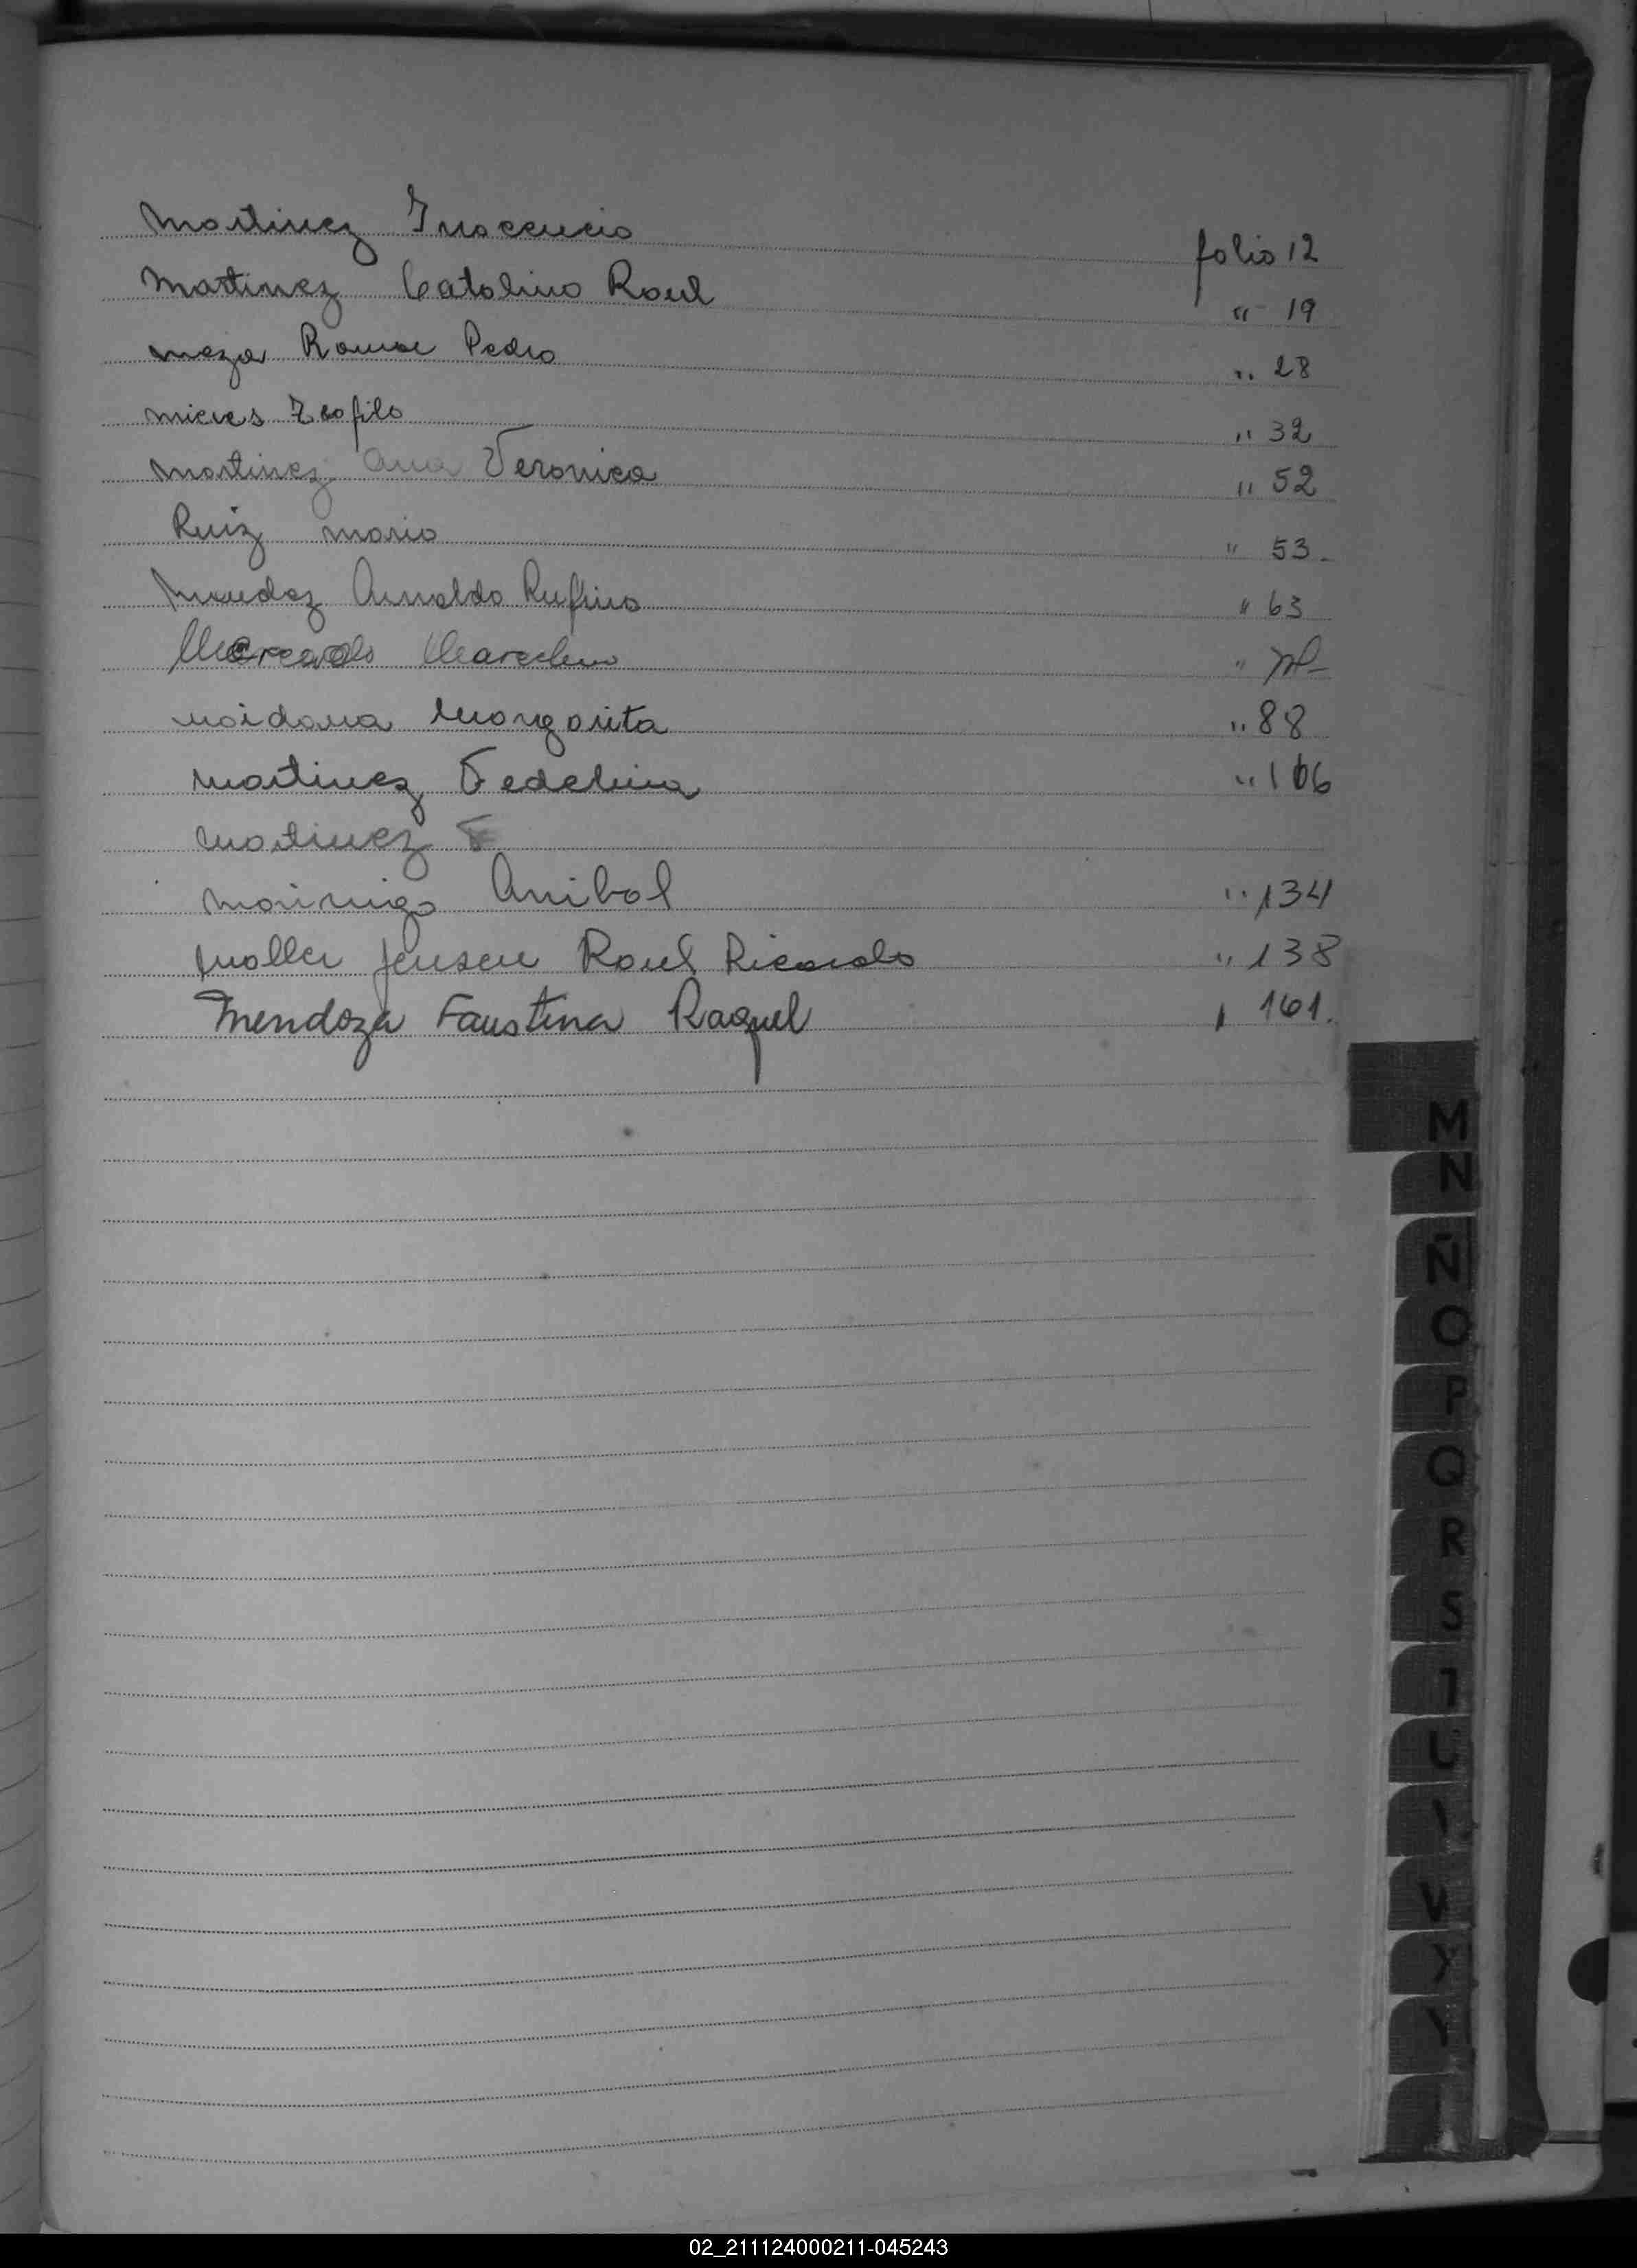 Martinez Inocencio folio 12
Martinez Catalino Raul " 19
Meza Ramon Pedro " 28
Mieres Teofilo " 32
Martinez Ana Veronica " 52
Ruiz Mario " 53.
Mendez Arnaldo Rufino " 63
Mercado Marcelino "
Maidana Margarita " 88
Martinez Fedelina " 106
Martinez F
Morinigo Anibal " 134
Moller Jensen Raul Ricardo " 138
Mendoza Faustina Raquel " 161.
M
N
Ñ
O
P
Q
R
S
T
U
V
X
Y
02_211124000211-045243